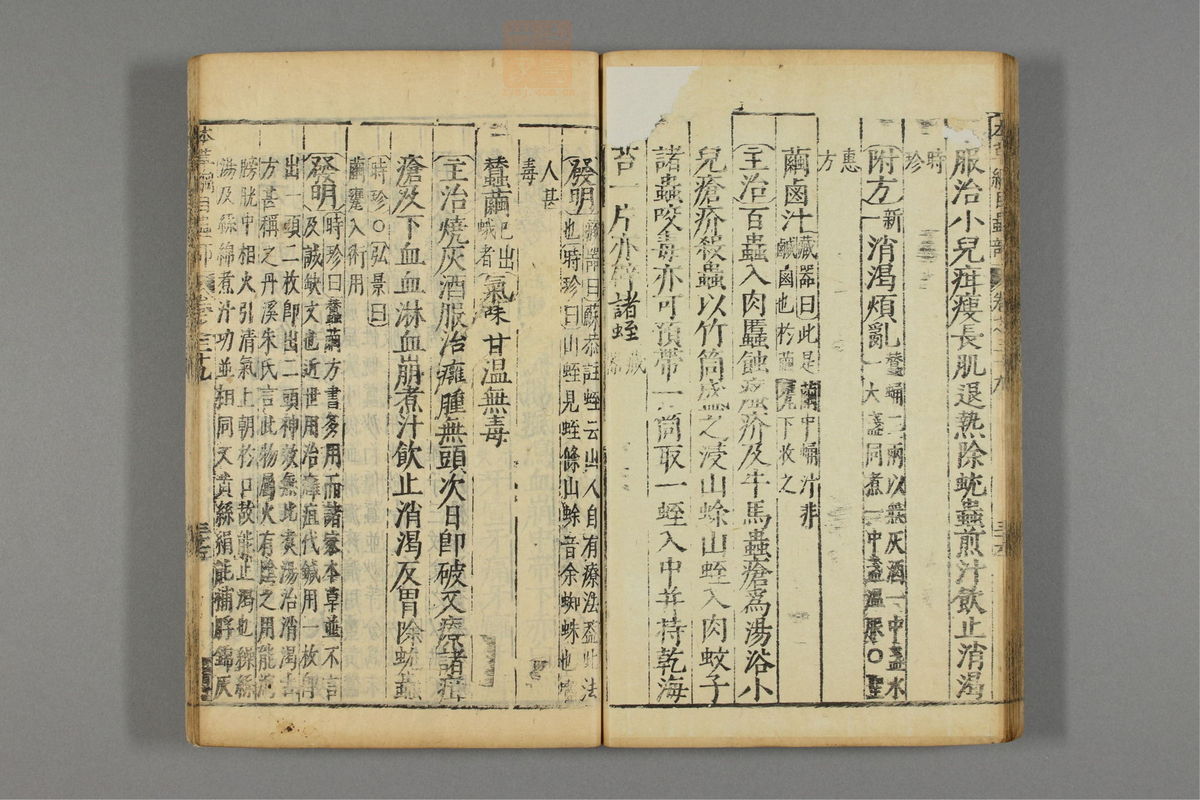 服治小兒疳瘦長肌退熱除蚘蟲煎汁飲止消渴
時珍
附方新一消渴煩亂蠶蛹二兩以無灰酒一中盞水
一大盞同煮一中盞溫服○聖
惠方
繭鹵汁藏器曰此是繭中蛹汁非
鹹鹵也於繭甕下收之
主治百蟲入肉䘌蝕瘙疥及牛馬蟲瘡為湯浴小
兒瘡疥殺蟲以竹筒盛之浸山蜍山蛭入肉蚊子
諸蟲咬毒亦可預帶一筒取一蛭入中并持乾海
苔一片亦辟諸蛭藏器
發明藏器曰蘇恭註蛭云山人自有療法蓋此法
也時珍曰山蛭見蛭條山蜍音余蜘蛛也
人甚
毒
蠶繭已出
蛾者氣味甘溫無毒
主治燒灰酒服治癰腫無頭次日即破又療諸疳
瘡及下血血淋血崩煮汁飲止消渴反胃除蚘蟲
時珍○弘景曰
繭甕入術用
發明時珍曰蠶繭方書多用而諸家本草並不言
及誠缺文也近世用治癰疽代鍼用一枚即
出一頭二枚即出二頭神效無比煮湯治消渴古
方甚稱之丹溪朱氏言此物屬火有陰之用能瀉
膀胱中相火引清氣上朝於口故能止渴也繅絲
湯及絲綿煮汁功並相同又黃絲絹能補脬錦灰